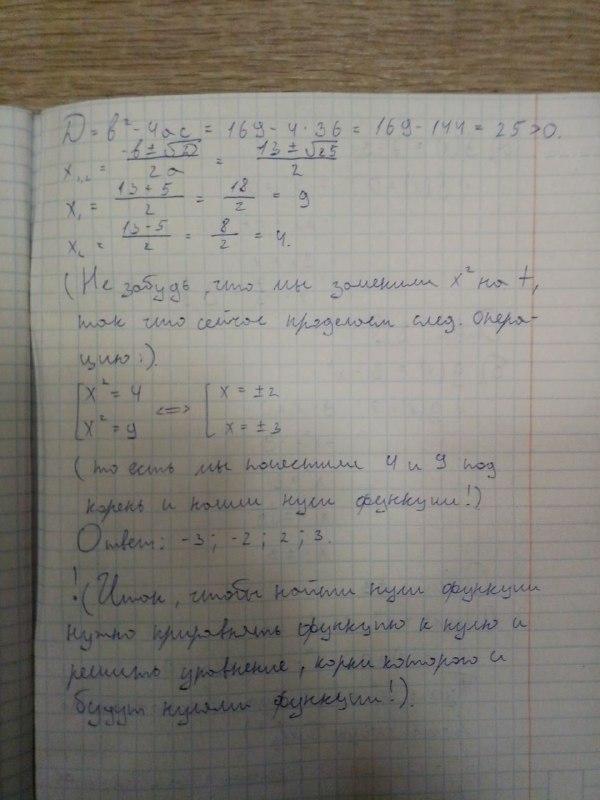 D = b² - 4ac = 169 - 4 · 36 = 169 - 144 = 25 > 0.
x₁,₂ = (-b ± √D)/(2a) = (13 ± √25)/2
x₁ = (13 + 5)/2 = 18/2 = 9
x₂ = (13 - 5)/2 = 8/2 = 4.
(Не забудь, что мы заменили x² на t,
так что сейчас проделаем след. опера-
цию :).
[x² = 4 <=> [x = ±2
[x² = 9 [x = ±3
(то есть мы поместили 4 и 9 под
корень и нашли нули функции!)
Ответ: -3; -2; 2; 3.
! (Итак, чтобы найти нули функции
нужно приравнять функцию к нулю и
решить уравнение, корни которого и
будут нулями функции!).